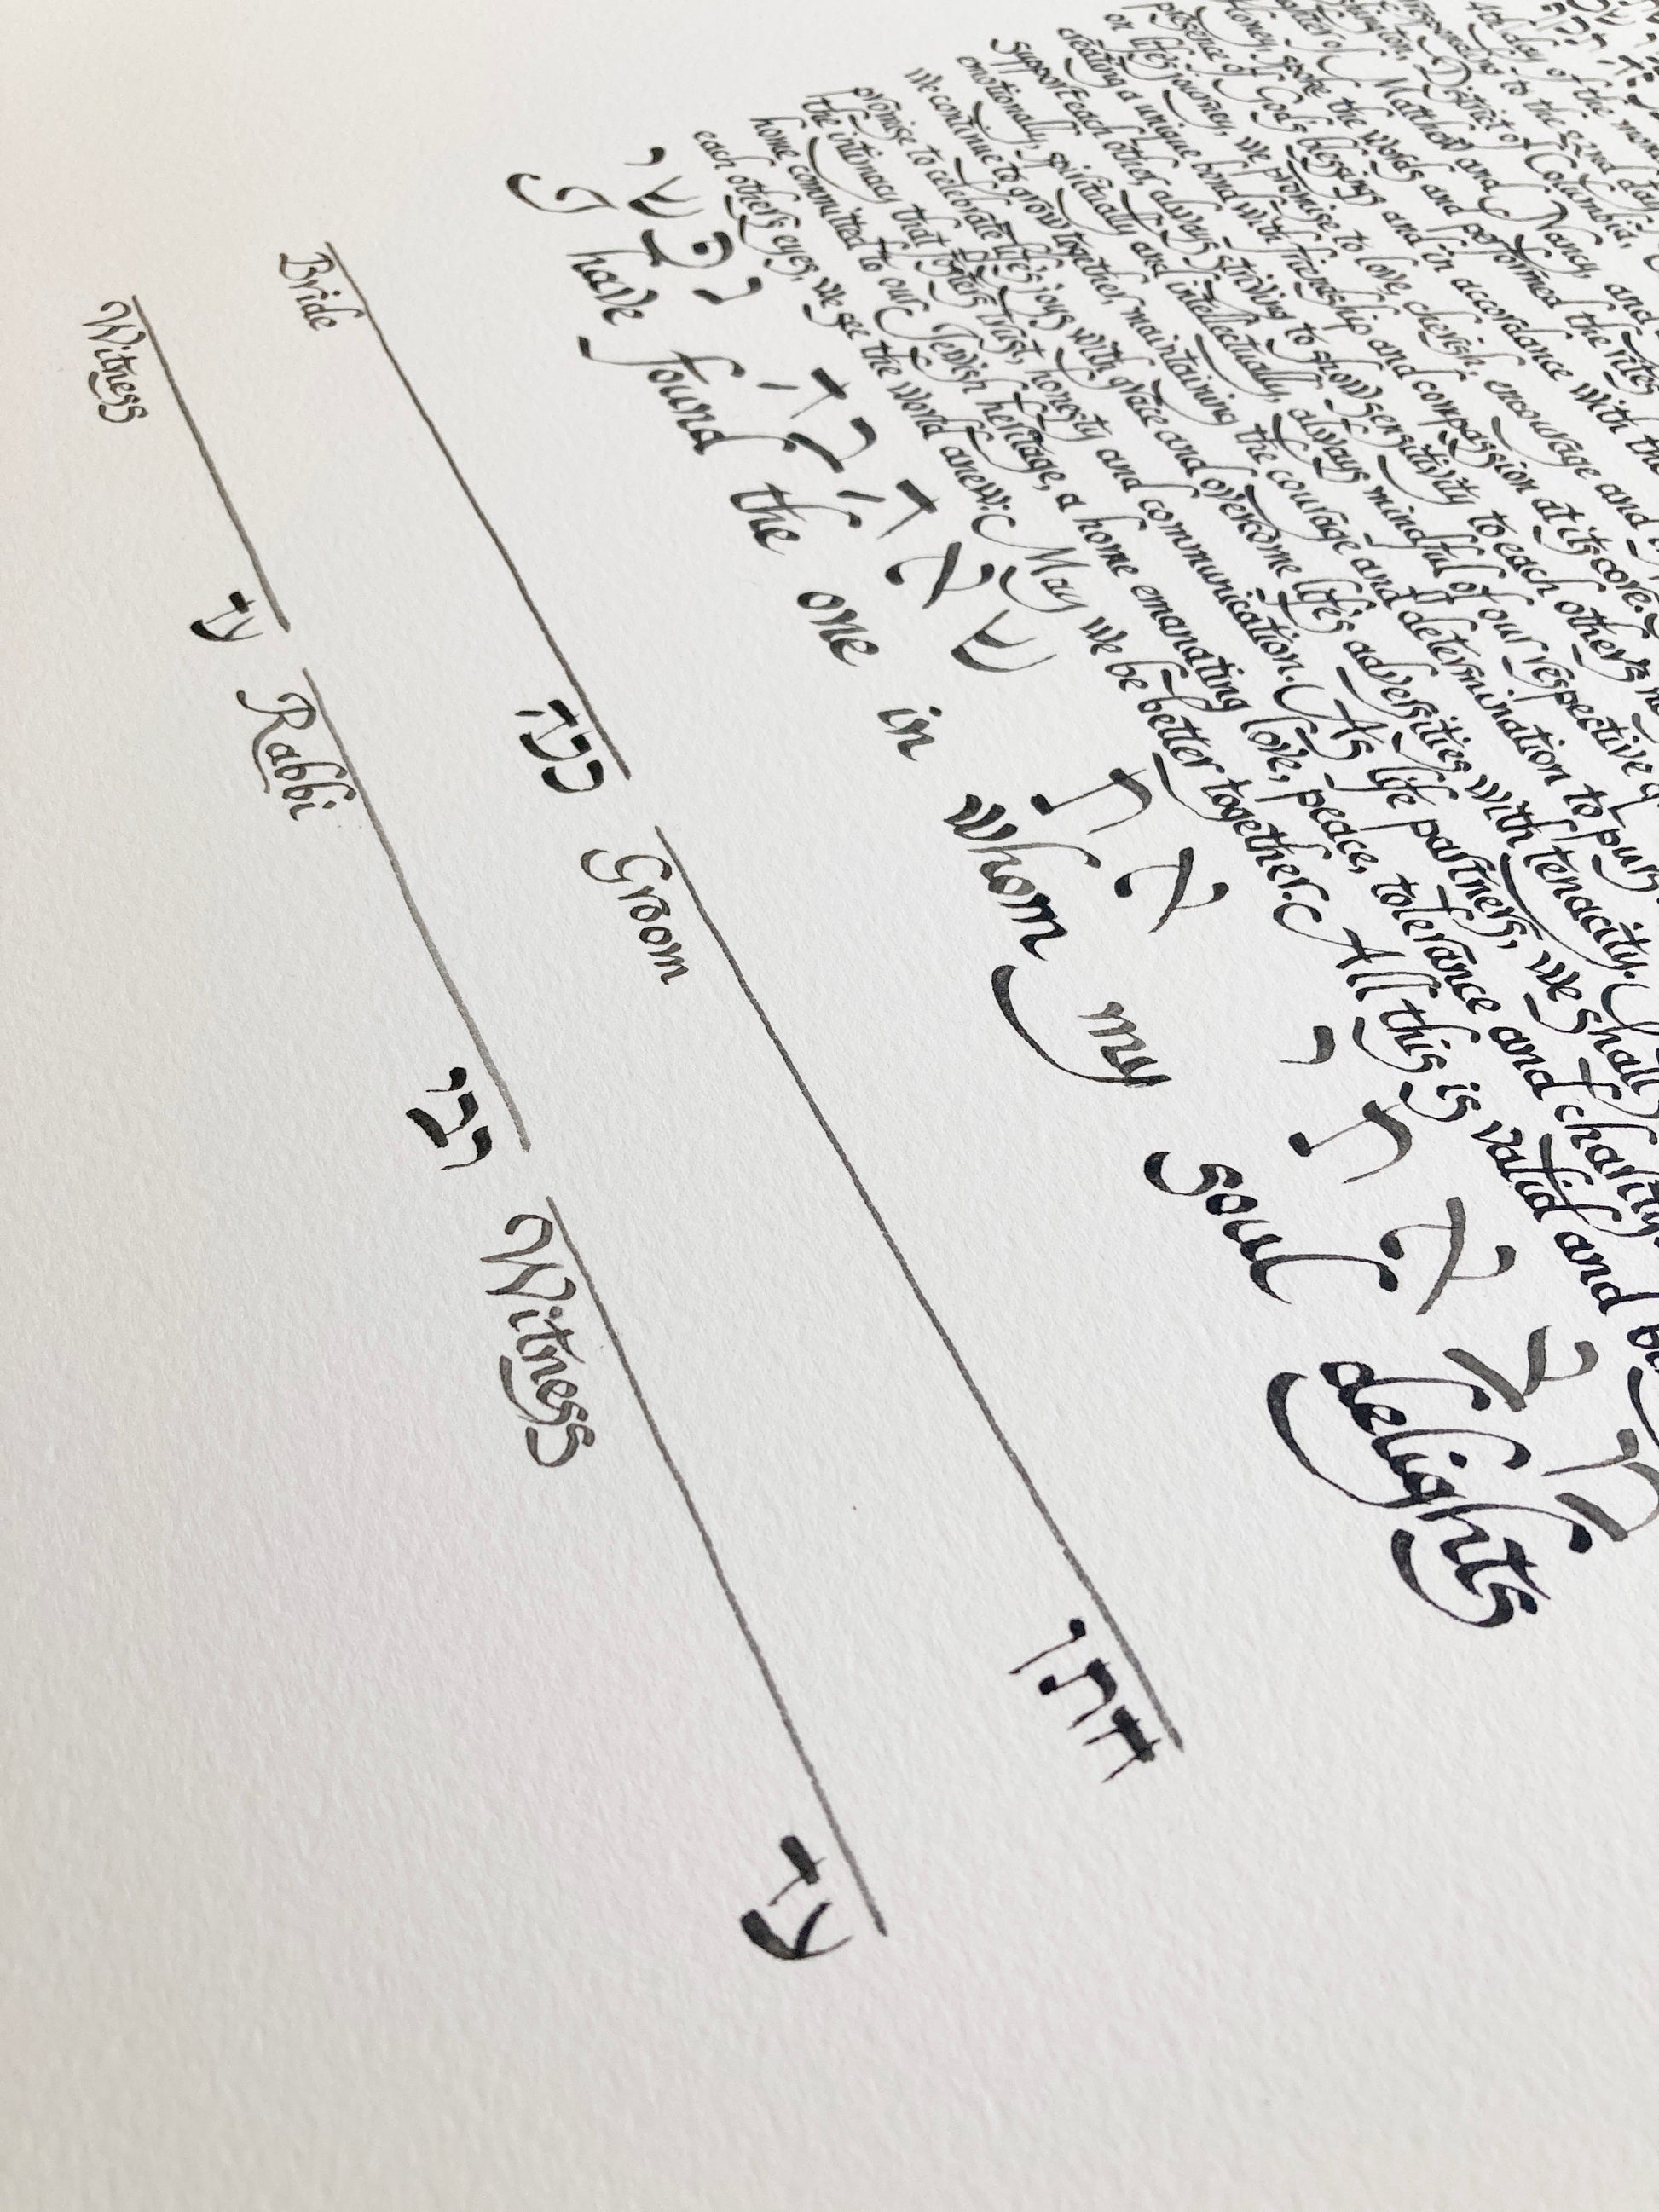 4th day of the
District of Columbia,
of Matthew and Nancy, and
Honey, spoke the words and performed the rites
presence of God's blessings and in accordance with the
on life's journey, we promise to love, cherish, encourage and
creating a unique bond with friendship and compassion at its core.
support each other, always striving to show sensitivity to each other's
emotionally, spiritually and intellectually, always mindful of our respective
we continue to grow together, maintaining the courage and determination to
promise to celebrate life's joys with grace and overcome life's adversities with tenacity.
the intimacy that fosters trust, honesty and communication. As life partners, we shall
home committed to our Jewish heritage, a home emanating love, peace, tolerance and charity.
each other's eyes, we see the world anew. May we be better together. All this is valid and
מצאתי את שאהבה נפשי
I have found the one in whom my soul delights
Bride כלה Groom חתן
Witness עד Rabbi רבי Witness עד